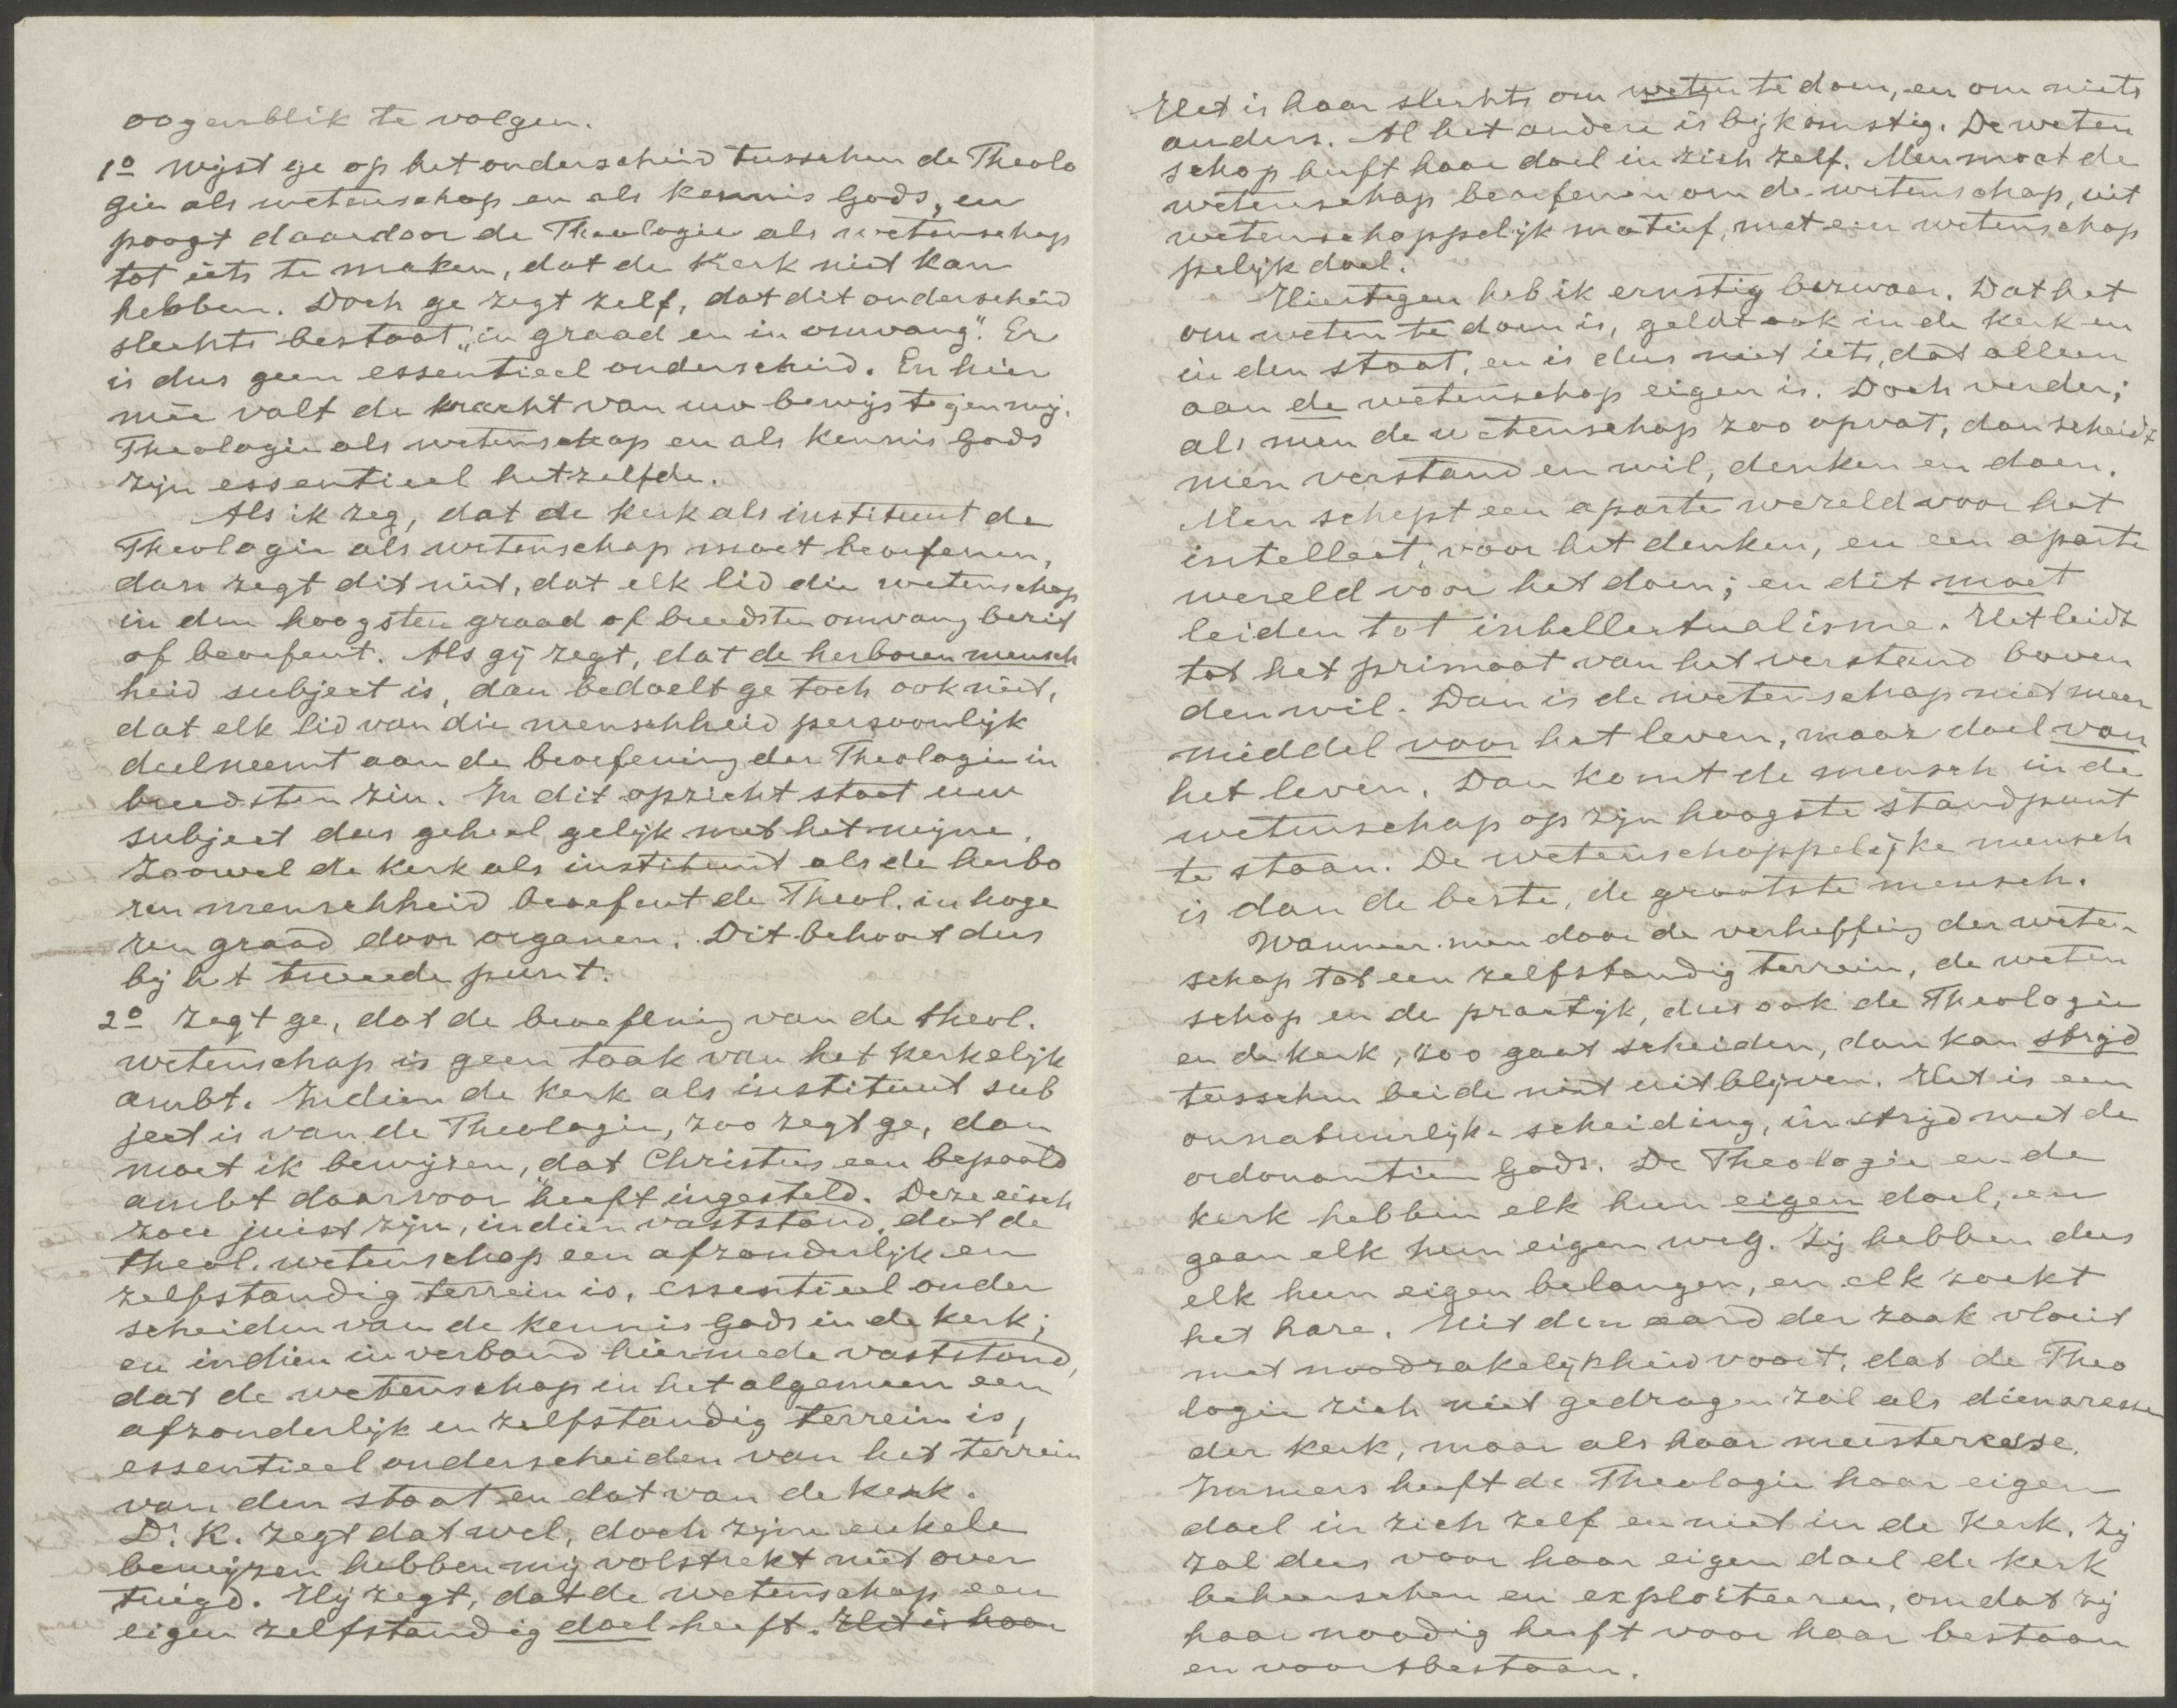 oogenblik te volgen.
1o wijst ge op het onderscheid tusschen de Theolo
gie als wetenschap en als kennis Gods, en
poogt daardoor de Theologie als wetenschap
tot iets te maken, dat de Kerk niet kan
hebben. Doch ge zegt zelf, dat dit onderscheid
slechts bestaat „in graad en in omvang". Er
is dus geen essentieel onderscheid. En hier
mee valt de kracht van uw bewijs tegen mij.
Theologie als wetenschap en als kennis Gods
zijn essentieel hetzelfde.
Als ik zeg, dat de kerk als instituut de
Theologie als wetenschap moet beoefenen,
dan zegt dit niet, dat elk lid die wetenschap
in den hoogsten graad of breedsten omvang bezit
of beoefent. Als gij zegt, dat de herboren mensch
heid subject is, dan bedoelt ge toch ook niet,
dat elk lid van die menschheid persoonlijk
deelneemt aan de beoefening der Theologie in
breedsten zin. In dit opzicht staat uw
subject dus geheel gelijk met het mijne.
Zoowel de kerk als instituut als de herbo
ren menschheid beoefent de Theol. in hoge
ren graad door organen. Dit behoort dus
bij het tweede punt.
2o zegt ge, dat de beoefening van de theol.
wetenschap is geen taak van het kerkelijk
ambt. Indien de kerk als instituut sub
ject is van de Theologie, zoo zegt ge, dan
moet ik bewijzen, dat Christus een bepaald
ambt daarvoor heeft ingesteld. Deze eisch
zou juist zijn, indien vaststond, dat de
theol. wetenschap een afzonderlijk en
zelfstandig terrein is, essentieel onder
scheiden van de kennis Gods in de kerk;
en indien in verband hiermede vaststond,
dat de wetenschap in het algemeen een
afzonderlijk en zelfstandig terrein is,
essentieel onderscheiden van het terrein
van den staat en dat van de kerk.
Dr. K. zegt dat wel, doch zijne enkele
bewijzen hebben mij volstrekt niet over
tuigd. Hij zegt, dat de wetenschap een
eigen zelfstandig doel heeft. Het is haar
Het is haar slechts om weten te doen, en om niets
anders. Al het andere is bijkomstig. De weten
schap heeft haar doel in zich zelf. Men moet de
wetenschap beoefenen om de wetenschap, uit
wetenschappelijk motief, met een wetenschap
pelijk doel.
Hiertegen heb ik ernstig bezwaar. Dat het
om weten te doen is, geldt ook in de kerk en
in den staat, en is dus niet iets, dat alleen
aan de wetenschap eigen is. Doch verder;
als men de wetenschap zoo opvat, dan scheidt
men verstand en wil, denken en doen.
Men schept een aparte wereld voor het
intellect, voor het denken, en een aparte
wereld voor het doen; en dit moet
leiden tot intellectualisme. Het leidt
tot het primaat van het verstand boven
den wil. Dan is de wetenschap niet meer
middel voor het leven, maar doel van
het leven. Dan komt de mensch in de
wetenschap op zijn hoogste standpunt
te staan. De wetenschappelijke mensch
is dan de beste, de grootste mensch.
Wanneer men door de verheffing der weten
schap tot een zelfstandig terrein, de weten
schap en de practijk, dus ook de Theologie
en de kerk, zoo gaat scheiden, dan kan strijd
tusschen beide niet uitblijven. Het is een
onnatuurlijke scheiding, in strijd met de
ordonantien Gods. De Theologie en de
kerk hebben elk hun eigen doel, en
gaan elk hun eigen weg. Zij hebben dus
elk hun eigen belangen, en elk zoekt
het hare. Uit den aard der zaak vloeit
met noodzakelijkheid voort, dat de Theo
logie zich niet gedragen zal als dienaresse
der kerk, maar als haar meesteresse.
Immers heeft de Theologie haar eigen
doel in zich zelf en niet in de kerk. Zij
zal dus voor haar eigen doel de kerk
beheerschen en exploiteeren, omdat zij
haar noodig heeft voor haar bestaan
en voortbestaan.